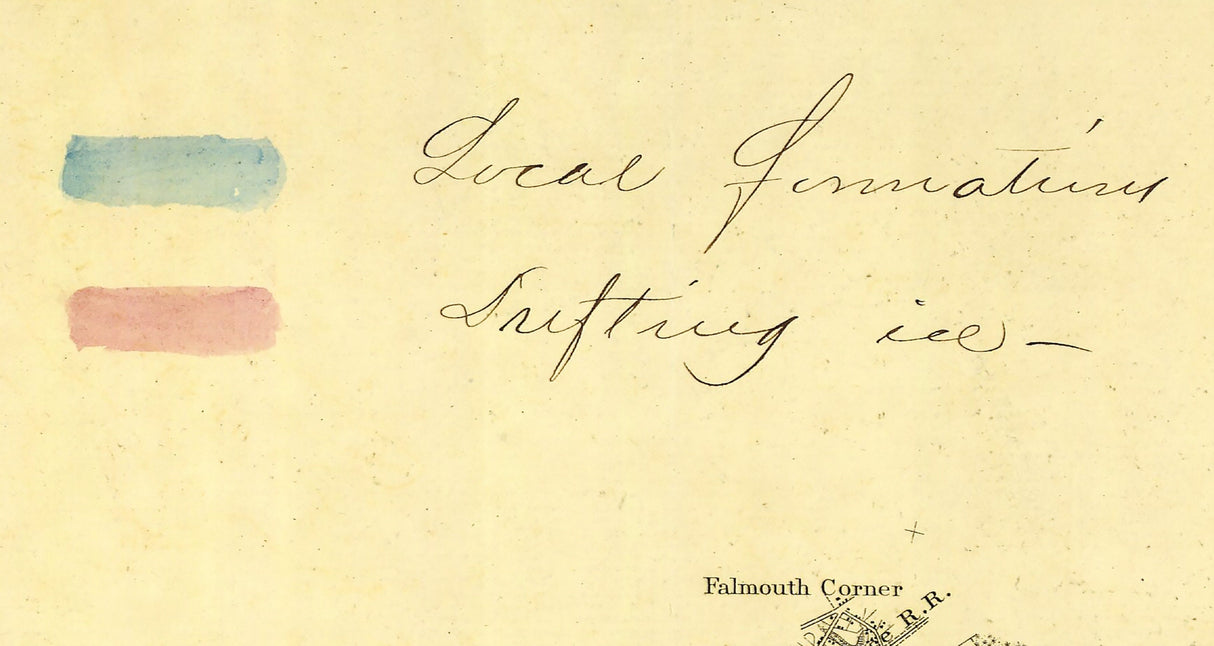 Local formations
Drifting ice —
Falmouth Corner
R.R.